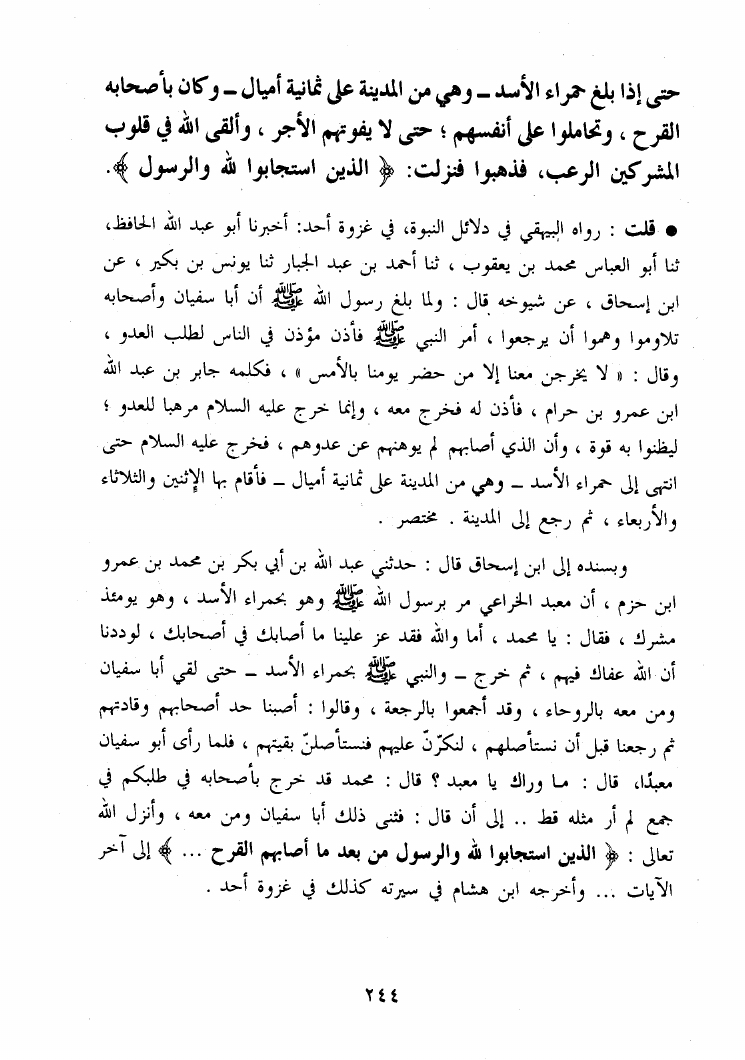 حتى إذا بلغ حمراء الأسد ــ وهي من المدينة على ثمانية أميال ــ وكان بأصحابه
القرح ، وتحاملوا على أنفسهم ؛ حتى لا يفوتهم الأجر ، وألقى الله في قلوب
المشركين الرعب، فذهبوا فنزلت: ﴿ الذين استجابوا لله والرسول ﴾.
● قلت : رواه البيهقي في دلائل النبوة، في غزوة أحد: أخبرنا أبو عبد الله الحافظ،
ثنا أبو العباس محمد بن يعقوب ، ثنا أحمد بن عبد الجبار ثنا يونس بن بكير ، عن
ابن إسحاق ، عن شيوخه قال : ولما بلغ رسول الله ﷺ أن أبا سفيان وأصحابه
تلاوموا وهموا أن يرجعوا ، أمر النبي ﷺ فأذن مؤذن في الناس لطلب العدو ،
وقال : « لا يخرجن معنا إلا من حضر يومنا بالأمس » ، فكلمه جابر بن عبد الله
ابن عمرو بن حرام ، فأذن له فخرج معه ، وإنما خرج عليه السلام مرهبا للعدو ؛
ليظنوا به قوة ، وأن الذي أصابهم لم يوهنهم عن عدوهم ، فخرج عليه السلام حتى
انتهى إلى حمراء الأسد ــ وهي من المدينة على ثمانية أميال ــ فأقام بها الإثنين والثلاثاء
والأربعاء ، ثم رجع إلى المدينة . مختصر .
وبسنده إلى ابن إسحاق قال : حدثني عبد الله بن أبي بكر بن محمد بن عمرو
ابن حزم ، أن معبد الخراعي مر برسول الله ﷺ وهو بحمراء الأسد ، وهو يومئذ
مشرك ، فقال : يا محمد ، أما والله فقد عز علينا ما أصابك في أصحابك ، لوددنا
أن الله عفاك فيهم ، ثم خرج ــ والنبي ﷺ بحمراء الأسد ــ حتى لقي أبا سفيان
ومن معه بالروحاء ، وقد أجمعوا بالرجعة ، وقالوا : أصبنا حد أصحابهم وقادتهم
ثم رجعنا قبل أن نستأصلهم ، لنكرّنّ عليهم فنستأصلنّ بقيتهم ، فلما رأى أبو سفيان
معبدًا، قال : ما وراك يا معبد ؟ قال : محمد قد خرج بأصحابه في طلبكم في
جمع لم أر مثله قط .. إلى أن قال : فثنى ذلك أبا سفيان ومن معه ، وأنزل الله
تعالى : ﴿ الذين استجابوا لله والرسول من بعد ما أصابهم القرح ... ﴾ إلى آخر
الآيات ... وأخرجه ابن هشام في سيرته كذلك في غزوة أحد .
٢٤٤